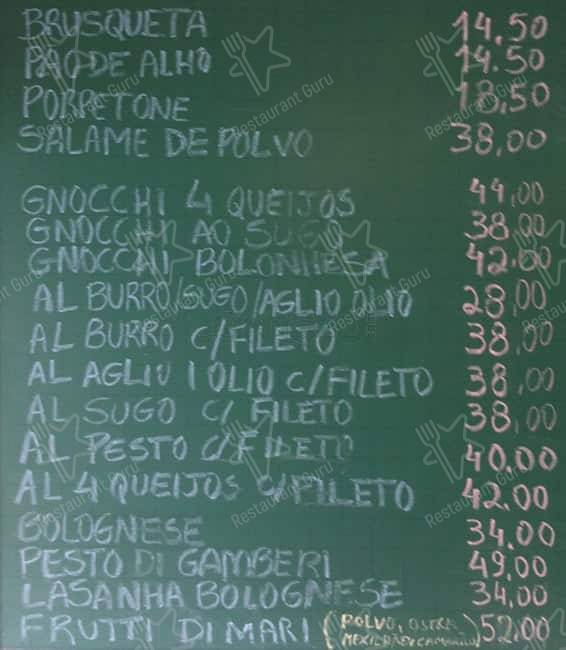 BRUSQUETA 14,50
PÃO DE ALHO 14.50
PORPETONE 18,50
SALAME DE POLVO 38,00
GNOCCHI 4 QUEIJOS 44,00
GNOCCHI AO SUGO 38,00
GNOCCHI BOLONHESA 42,00
AL BURRO/SUGO/AGLIO OLIO 28,00
AL BURRO C/FILETO 38,00
AL AGLIO I OLIO C/FILETO 38,00
AL SUGO C/ FILETO 38,00
AL PESTO C/FILETO 40,00
AL 4 QUEIJOS C/FILETO 42,00
BOLOGNESE 34,00
PESTO DI GAMBERI 49,00
LASANHA BOLOGNESE 34,00
FRUTTI DI MARI (POLVO, OSTRA, 52,00
MEXILHÃO E CAMARÃO)
Restaurant Guru